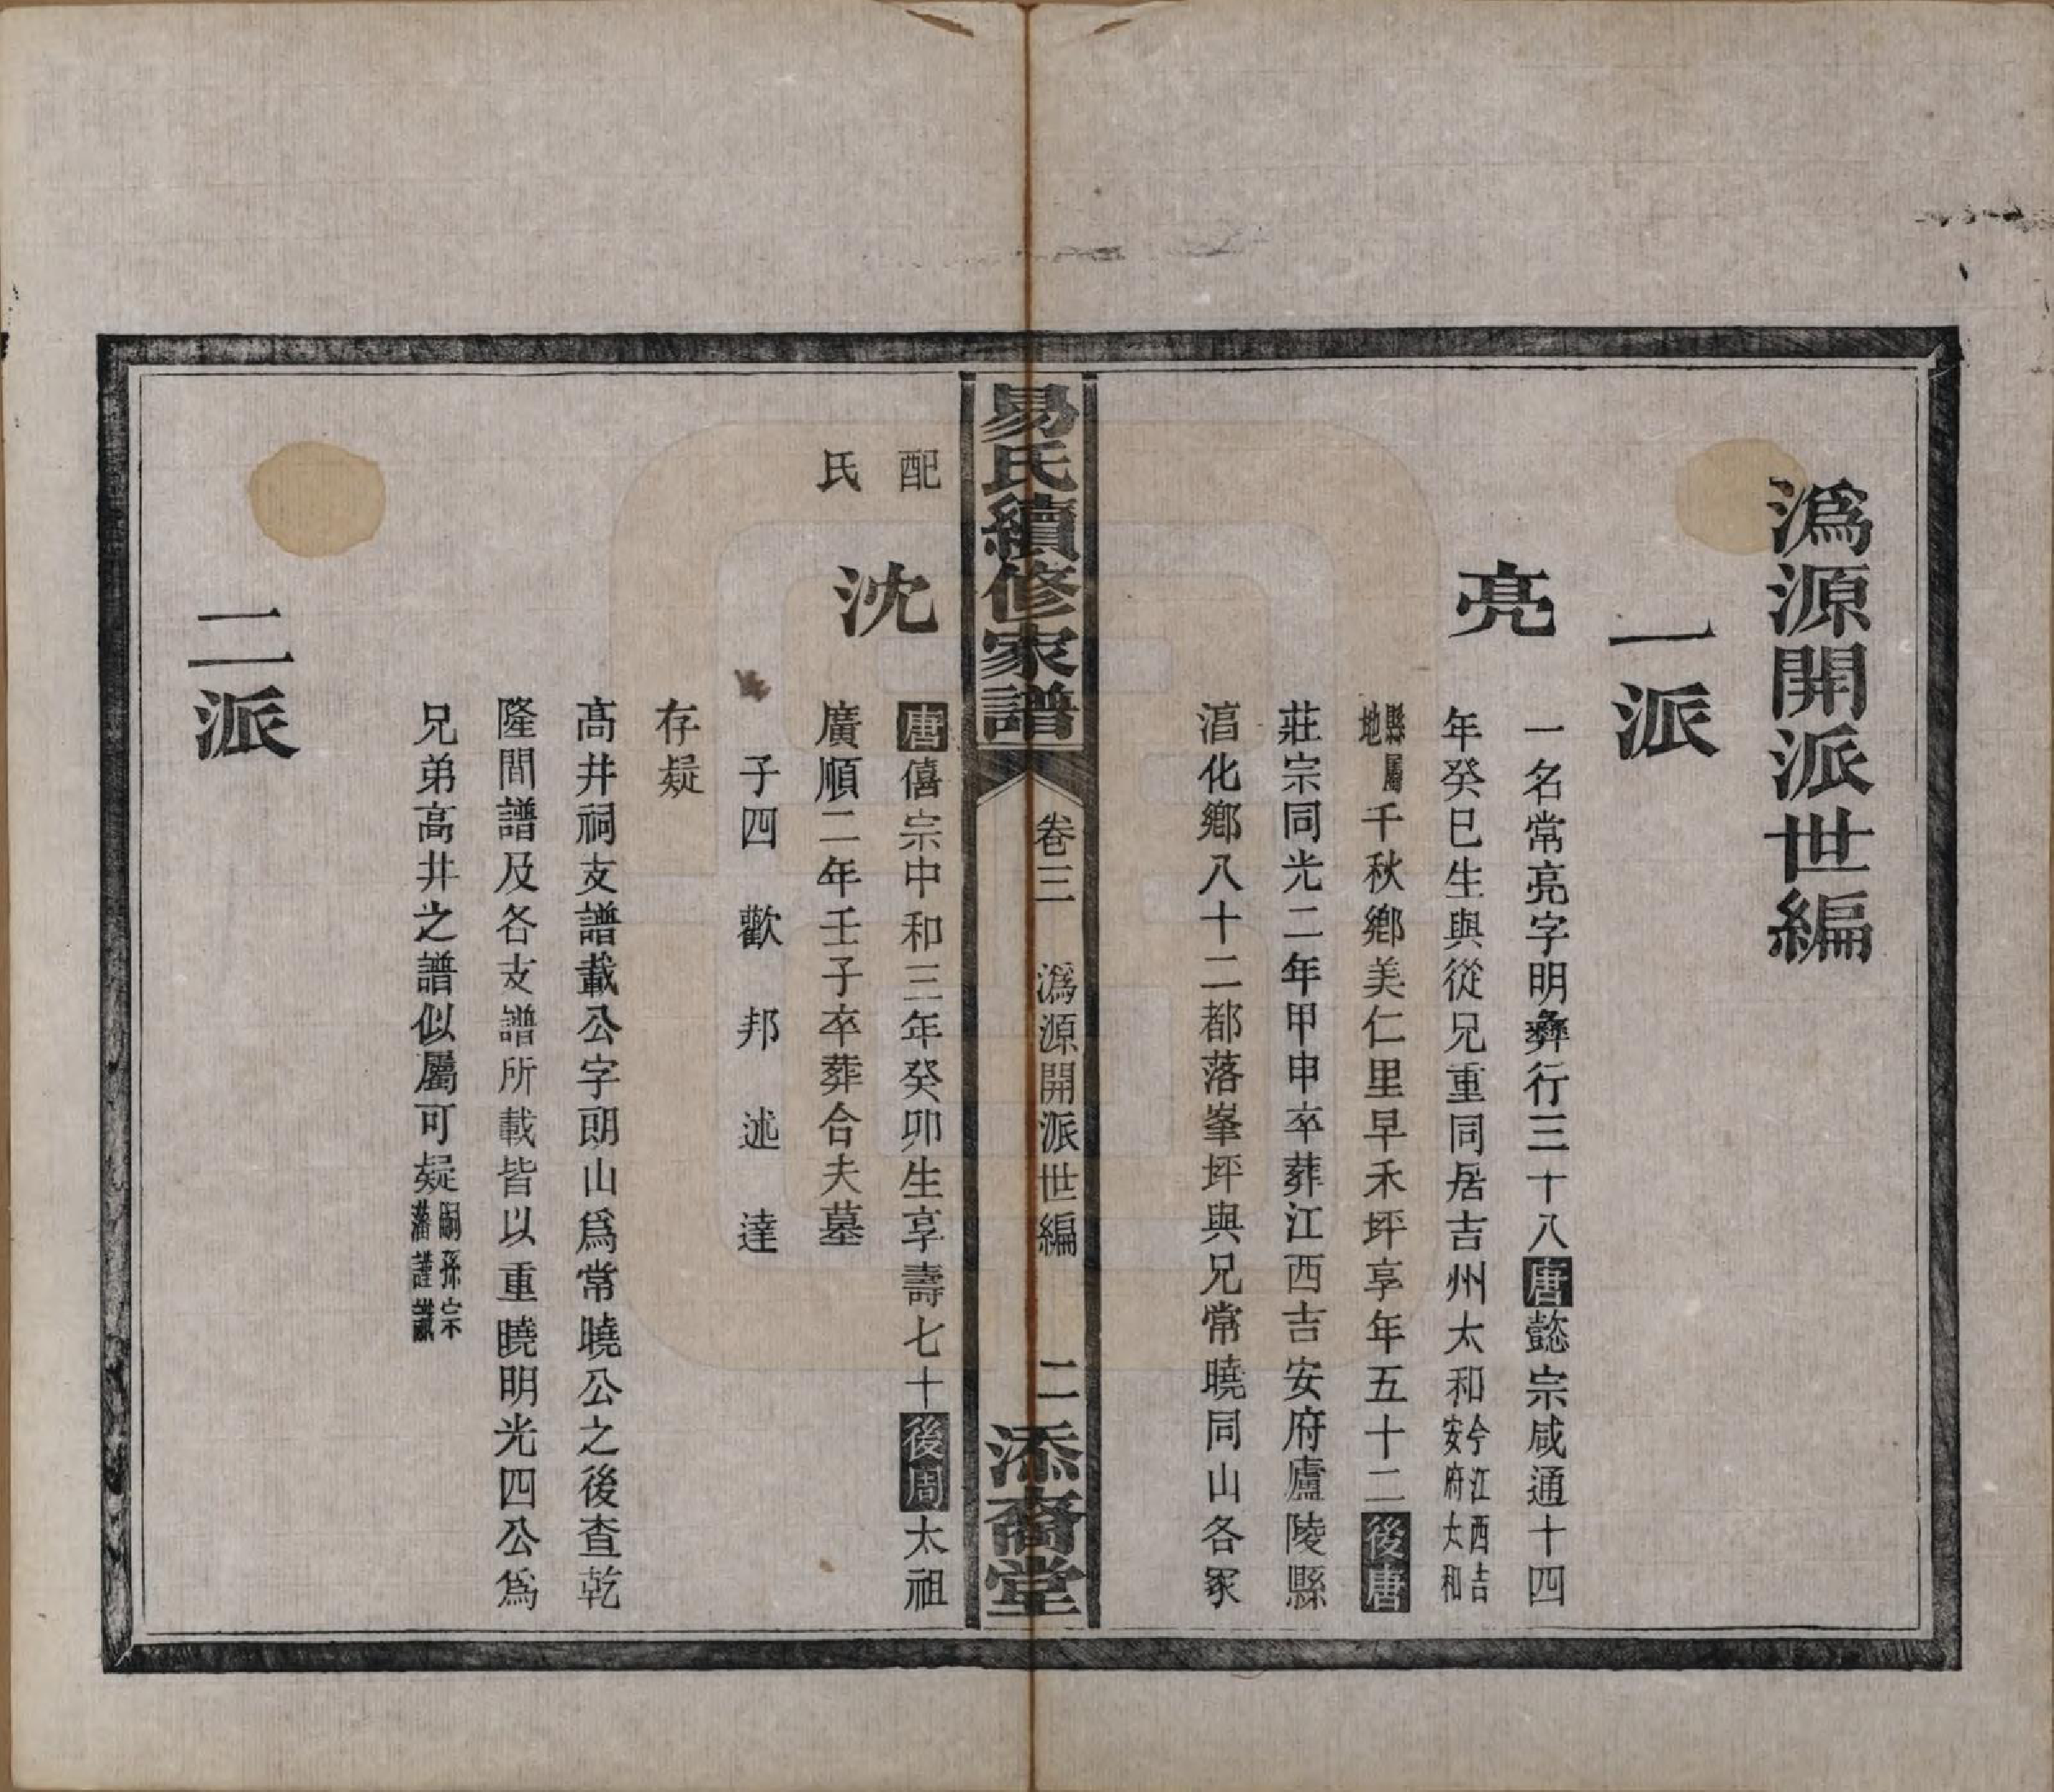 溈源開派世編
一派
亮
一名常亮字明彝行三十八唐懿宗咸通十四
年癸巳生與從兄重同居吉州太和今江西吉安府太和
縣屬地千秋鄉美仁里早禾坪享年五十二後唐
莊宗同光二年甲申卒葬江西吉安府廬陵縣
淐化鄉八十二都落峯坪與兄常曉同山各冢
易氏續修家譜
卷三
溈源開派世編
二
添裔堂
配
氏
沈
唐僖宗中和三年癸卯生享壽七十後周太祖
廣順二年壬子卒葬合夫墓
子四 歡 邦 述 達
存疑
高井祠支譜載公字朗山爲常曉公之後查乾
隆間譜及各支譜所載皆以重曉明光四公爲
兄弟高井之譜似屬可疑嗣孫宗藩謹識
二派